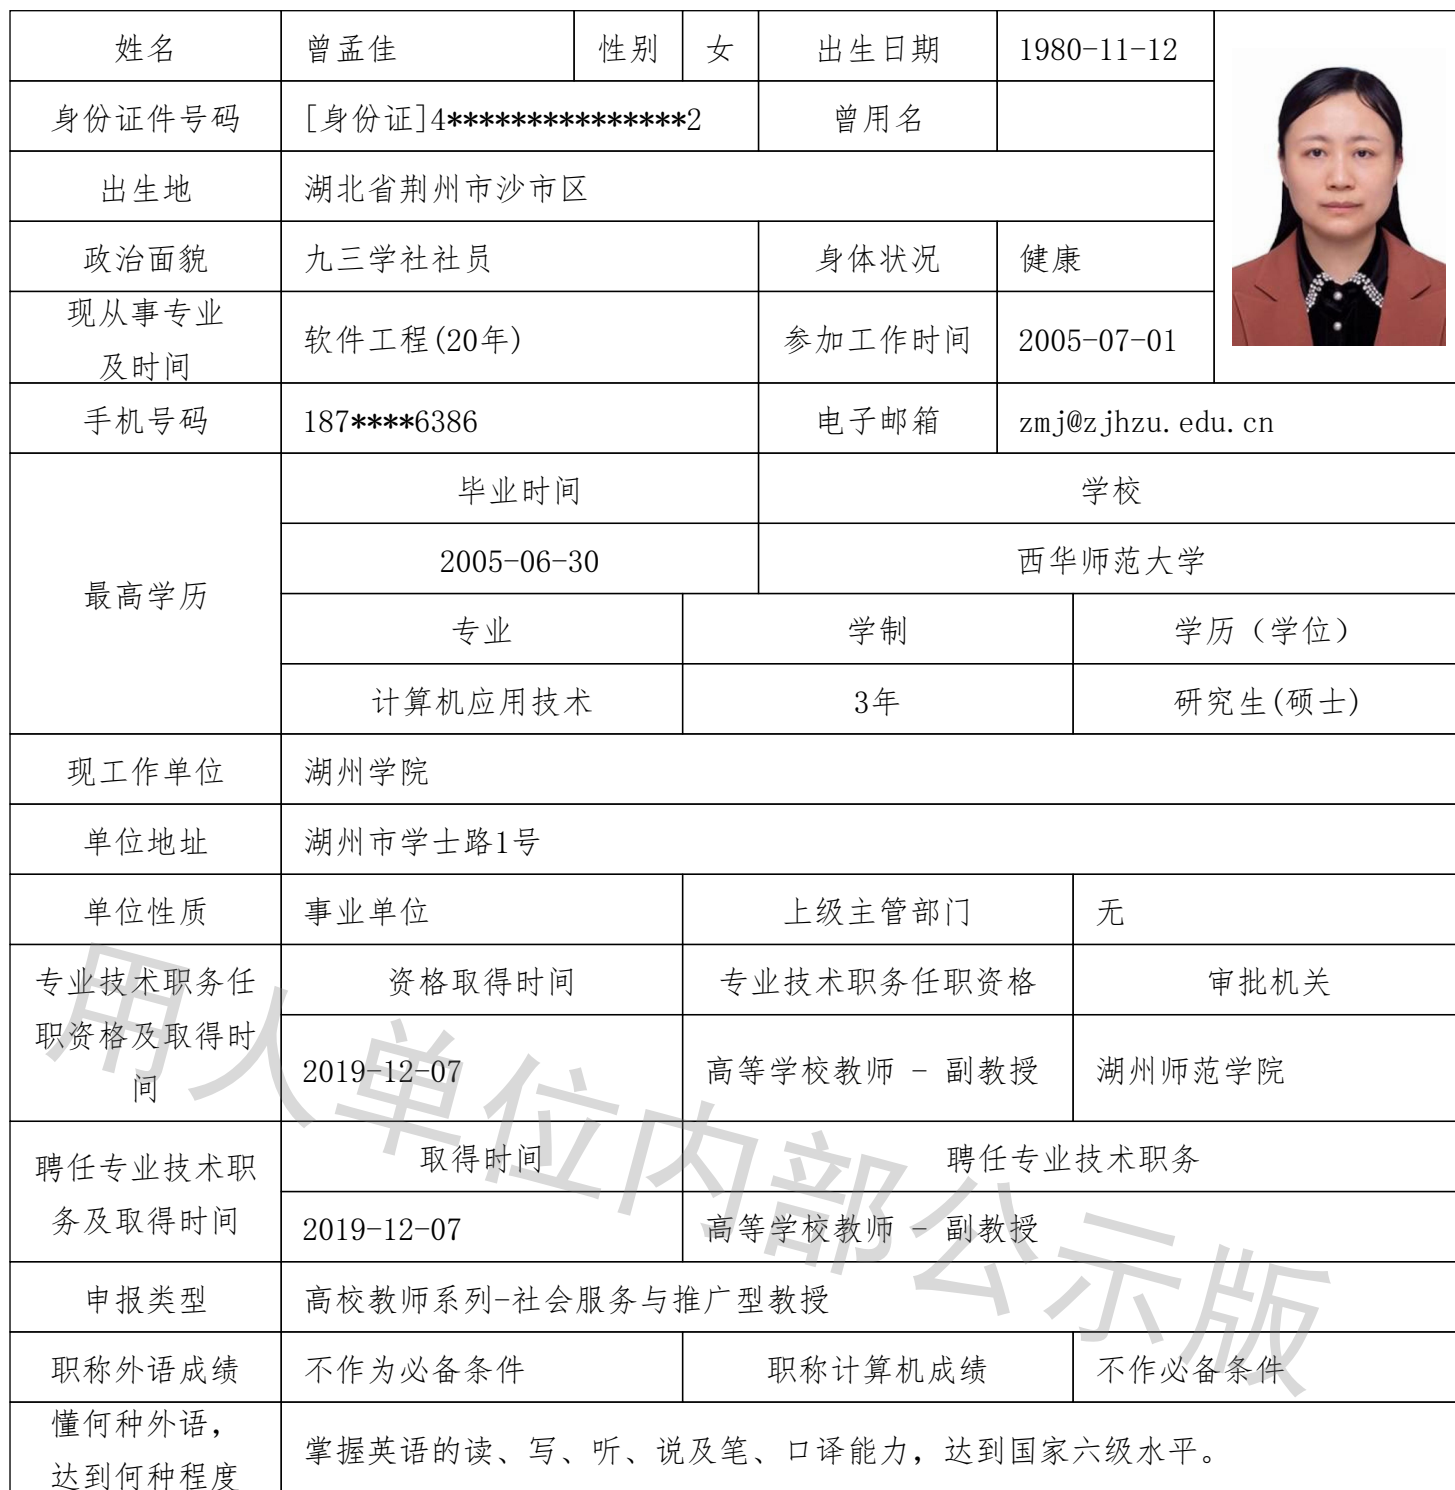 姓名 曾孟佳 性别 女 出生日期 1980-11-12
身份证件号码 [身份证]4***************2 曾用名
出生地 湖北省荆州市沙市区
政治面貌 九三学社社员 身体状况 健康
现从事专业
及时间
软件工程(20年) 参加工作时间 2005-07-01
手机号码 187****6386 电子邮箱 zmj@zjhzu.edu.cn
最高学历
毕业时间 学校
2005-06-30 西华师范大学
专业 学制 学历（学位）
计算机应用技术 3年 研究生(硕士)
现工作单位 湖州学院
单位地址 湖州市学士路1号
单位性质 事业单位 上级主管部门 无
专业技术职务任
职资格及取得时
间
资格取得时间 专业技术职务任职资格 审批机关
2019-12-07 高等学校教师 - 副教授 湖州师范学院
聘任专业技术职
务及取得时间
取得时间 聘任专业技术职务
2019-12-07 高等学校教师 - 副教授
申报类型 高校教师系列-社会服务与推广型教授
职称外语成绩 不作为必备条件 职称计算机成绩 不作必备条件
懂何种外语，
达到何种程度
掌握英语的读、写、听、说及笔、口译能力，达到国家六级水平。
用人单位内部公示版